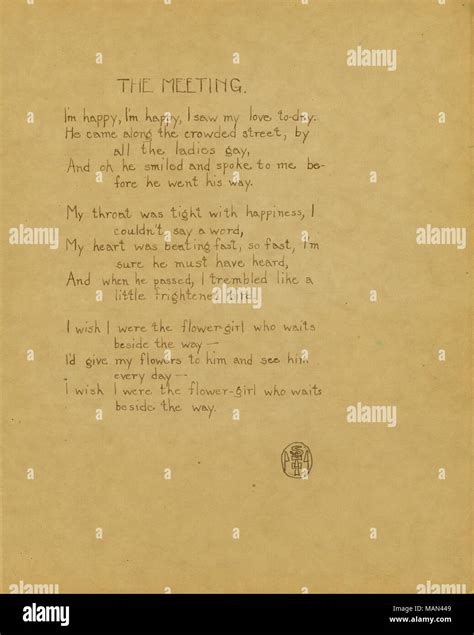 THE MEETING.
I'm happy, I'm happy, I saw my love to-day.
He came along the crowded street, by
all the ladies gay,
And oh he smiled and spoke to me be-
fore he went his way.
My throat was tight with happiness, I
couldn't say a word,
My heart was beating fast, so fast, I'm
sure he must have heard,
And when he passed, I trembled like a
little frightened
I wish I were the flower-girl who waits
beside the way—
I'd give my flowers to him and see him
every day—
I wish I were the flower-girl who waits
beside the way.
alamy
Image ID: MAN449
www.alamy.com